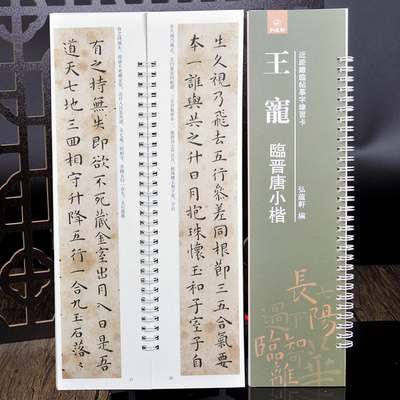 近距離臨帖摹字練習卡
王寵
臨晋唐小楷
弘蘊軒 編
生久視乃飛去五行參差同根節三五合氣要
本一誰與共之升日月抱珠懷玉和子室子自
有之持無失即欲不死藏金室出月入日是吾
道天七地三回相守升降五行一合九玉石落〻